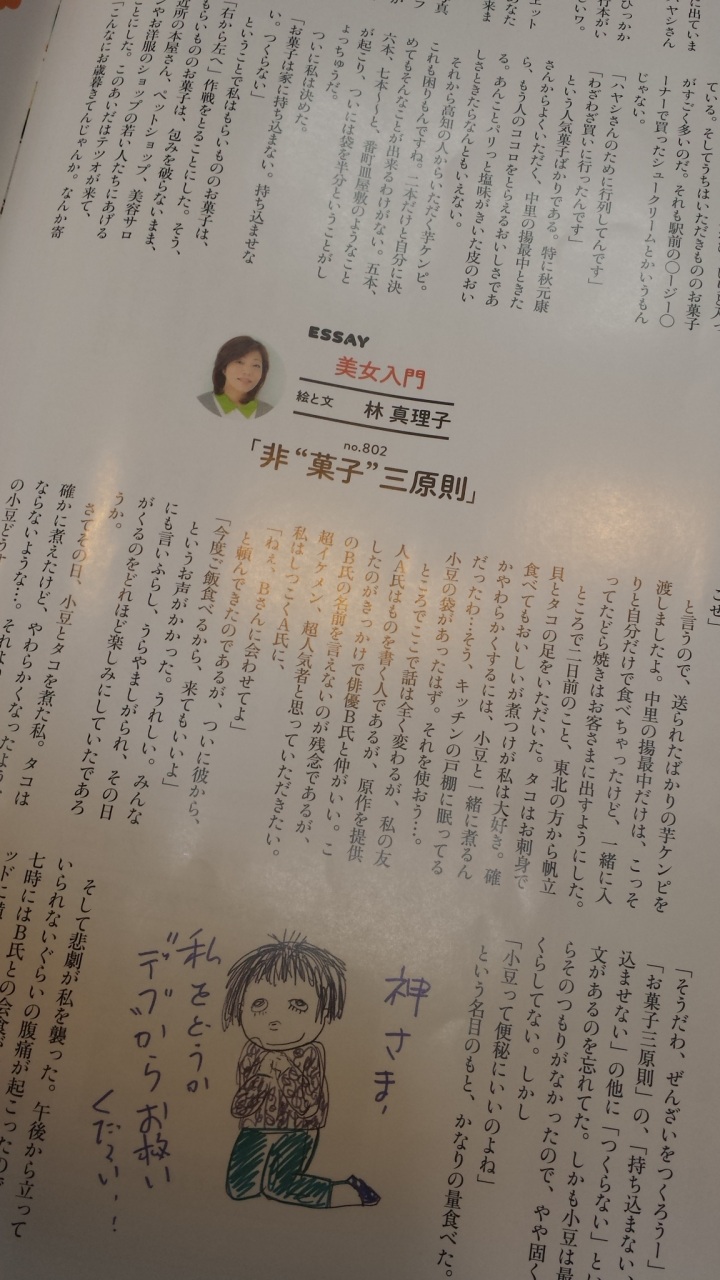 に出ていま
ハヤシさん
ひっかか
ている。そしてうちはいただきもののお菓子
がすごく多いのだ。それも駅前の〇ージー〇
ーナーで買ったシュークリームとかいうもん
じゃない。
「ハヤシさんのために行列してんです」
「わざわざ買いに行ったんです」
という人気菓子ばかりである。特に秋元康
さんからよくいただく、中里の揚最中ときた
ら、もう人のココロをとらえるおいしさであ
る。あんことパリっと塩味がきいた皮のおい
しさときたらなんともいえない。
それから高知の人からいただく芋ケンピ。
これも困りもんですね。二本だけと自分に決
めてもそんなことが出来るわけがない。五本、
六本、七本〜と、番町皿屋敷のようなこと
が起こり、ついには袋を半分ということがし
ょっちゅうだ。
ついに私は決めた。
「お菓子は家に持ち込まない。持ち込ませな
い。つくらない」
ということで私はもらいもののお菓子は、
「右から左へ」作戦をとることにした。そう、
もらいもののお菓子は、包みを破らないまま、
近所の本屋さん、ペットショップ、美容サロ
ンやお洋服のショップの若い人たちにあげる
ことにした。このあいだはテツオが来て、
「こんなにお歳暮きてんじゃんか。なんか寄
ESSAY
美女入門
絵と文 林 真理子
no.802
「非“菓子”三原則」
こせ」
と言うので、送られたばかりの芋ケンピを
渡しましたよ。中里の揚最中だけは、こっそ
りと自分だけで食べちゃったけど、一緒に入
ってたどら焼きはお客さまに出すようにした。
ところで二日前のこと、東北の方から帆立
貝とタコの足をいただいた。タコはお刺身で
食べてもおいしいが煮つけが私は大好き。確
かやわらかくするには、小豆と一緒に煮るん
だったわ…そう、キッチンの戸棚に眠ってる
小豆の袋があったはず。それを使おう…。
ところでここで話は全く変わるが、私の友
人A氏はものを書く人であるが、原作を提供
したのがきっかけで俳優B氏と仲がいい。こ
のB氏の名前を言えないのが残念であるが、
超イケメン、超人気者と思っていただきたい。
私はしつこくA氏に、
「ねぇ、Bさんに会わせてよ」
と頼んできたのであるが、ついに彼から、
「今度ご飯食べるから、来てもいいよ」
というお声がかかった。うれしい。みんな
にも言いふらし、うらやましがられ、その日
がくるのをどれほど楽しみにしていたであろ
うか。
さてその日、小豆とタコを煮た私。タコは
確かに煮えたけど、やわらかくなったよう、
ならないような…。それより
の小豆どう
「そうだわ、ぜんざいをつくろうー」
「お菓子三原則」の、「持ち込まない
込ませない」の他に「つくらない」と
文があるのを忘れてた。しかも小豆は最
らそのつもりがなかったので、やや固く
くらしてない。しかし
「小豆って便秘にいいのよね」
という名目のもと、かなりの量食べた。
神さま、
私をどうか
デブからお救い
ください！！
そして悲劇が私を襲った。午後から立って
いられないぐらいの腹痛が起こったので
七時にはB氏との会食が